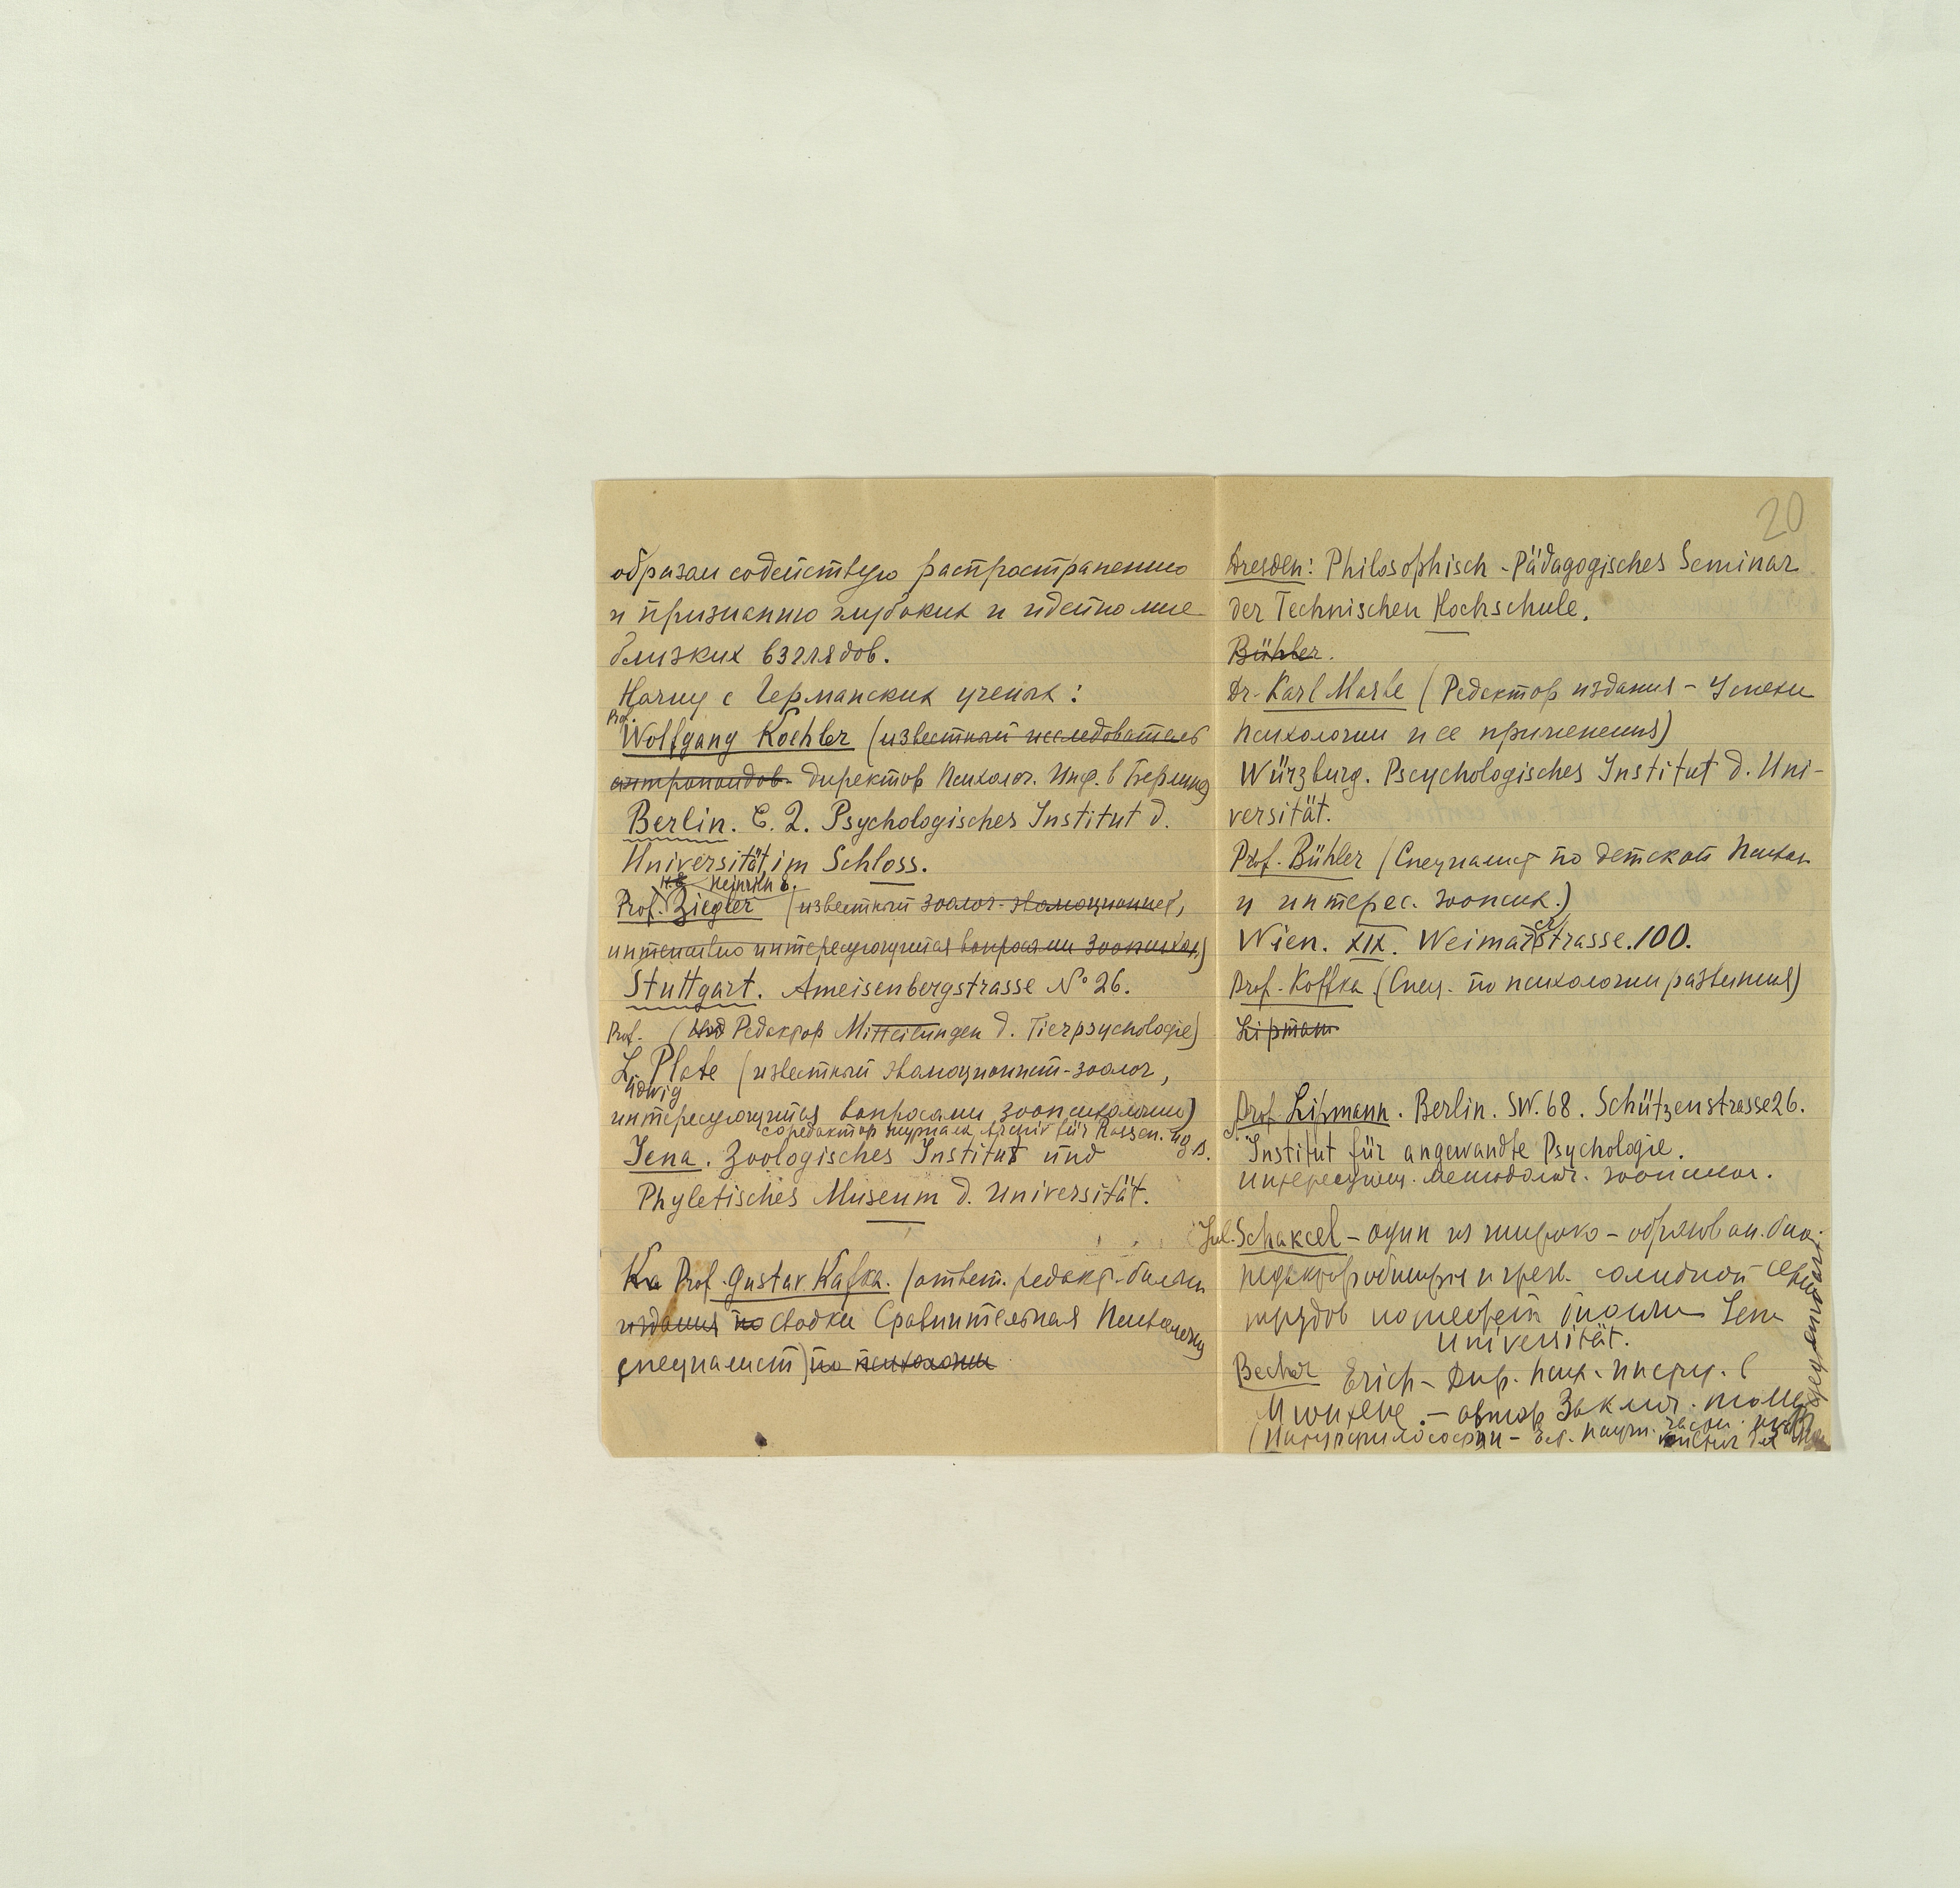 образом содействую распространению
и признанию глубоких и идейно мне
близких взглядов.
Начну с Германских ученых:
Prof.
Wolfgang Koehler (известный исследователь
антропоидов. директор Психолог. Инс. в Берлине)
Berlin. C. 2. Psychologisches Institut d.
Universität, im Schloss.
H.E. Heinrich E.
Prof. Ziegler (известный зоолог-эволюционист,
интенсивно интересующийся вопросами зоопсихол.)
Stuttgart. Ameisenbergstrasse № 26.
Prof. (Редактор Mitteilungen d. Tierpsychologie)
L. Plate (известный эволюционист-зоолог,
udwig
интересующийся вопросами зоопсихологии)
соредактор журнала Archiv für Rassen. u. g. B.
Jena. Zoologisches Institut und
Phyletisches Museum d. Universität.
Ка Prof. Gustav Kafka. (ответ. редакт.
издания по сводки Сравнительная Психология
специалист) по психологии
20
Dresden: Philosophisch-Pädagogisches Seminar
der Technischen Hochschule.
Bühler.
Dr. Karl Marbe (Редактор издания - Успехи
психологии и ее применения)
Würzburg. Pscychologisches Institut d. Uni-
versität.
Prof. Bühler (Специалист по детской психол
и интерес. зоопсих.)
Wien. XIX. Weimarerstrasse. 100.
Prof. Koffka (Спец. по психологии развития)
Lipmann
Prof. Lipmann. Berlin. SW. 68. Schützenstrasse 26.
Institut für angewandte Psychologie.
интересующ. методолог. зоопсихол.
Jul. Schaxel - один из широко-образован. био.
солидной
трудов Jena
Universität.
Becher Erich - Дир. псих. инсти. в
Мюнхене. - автор Заключ. тома
(Натурфилософии -